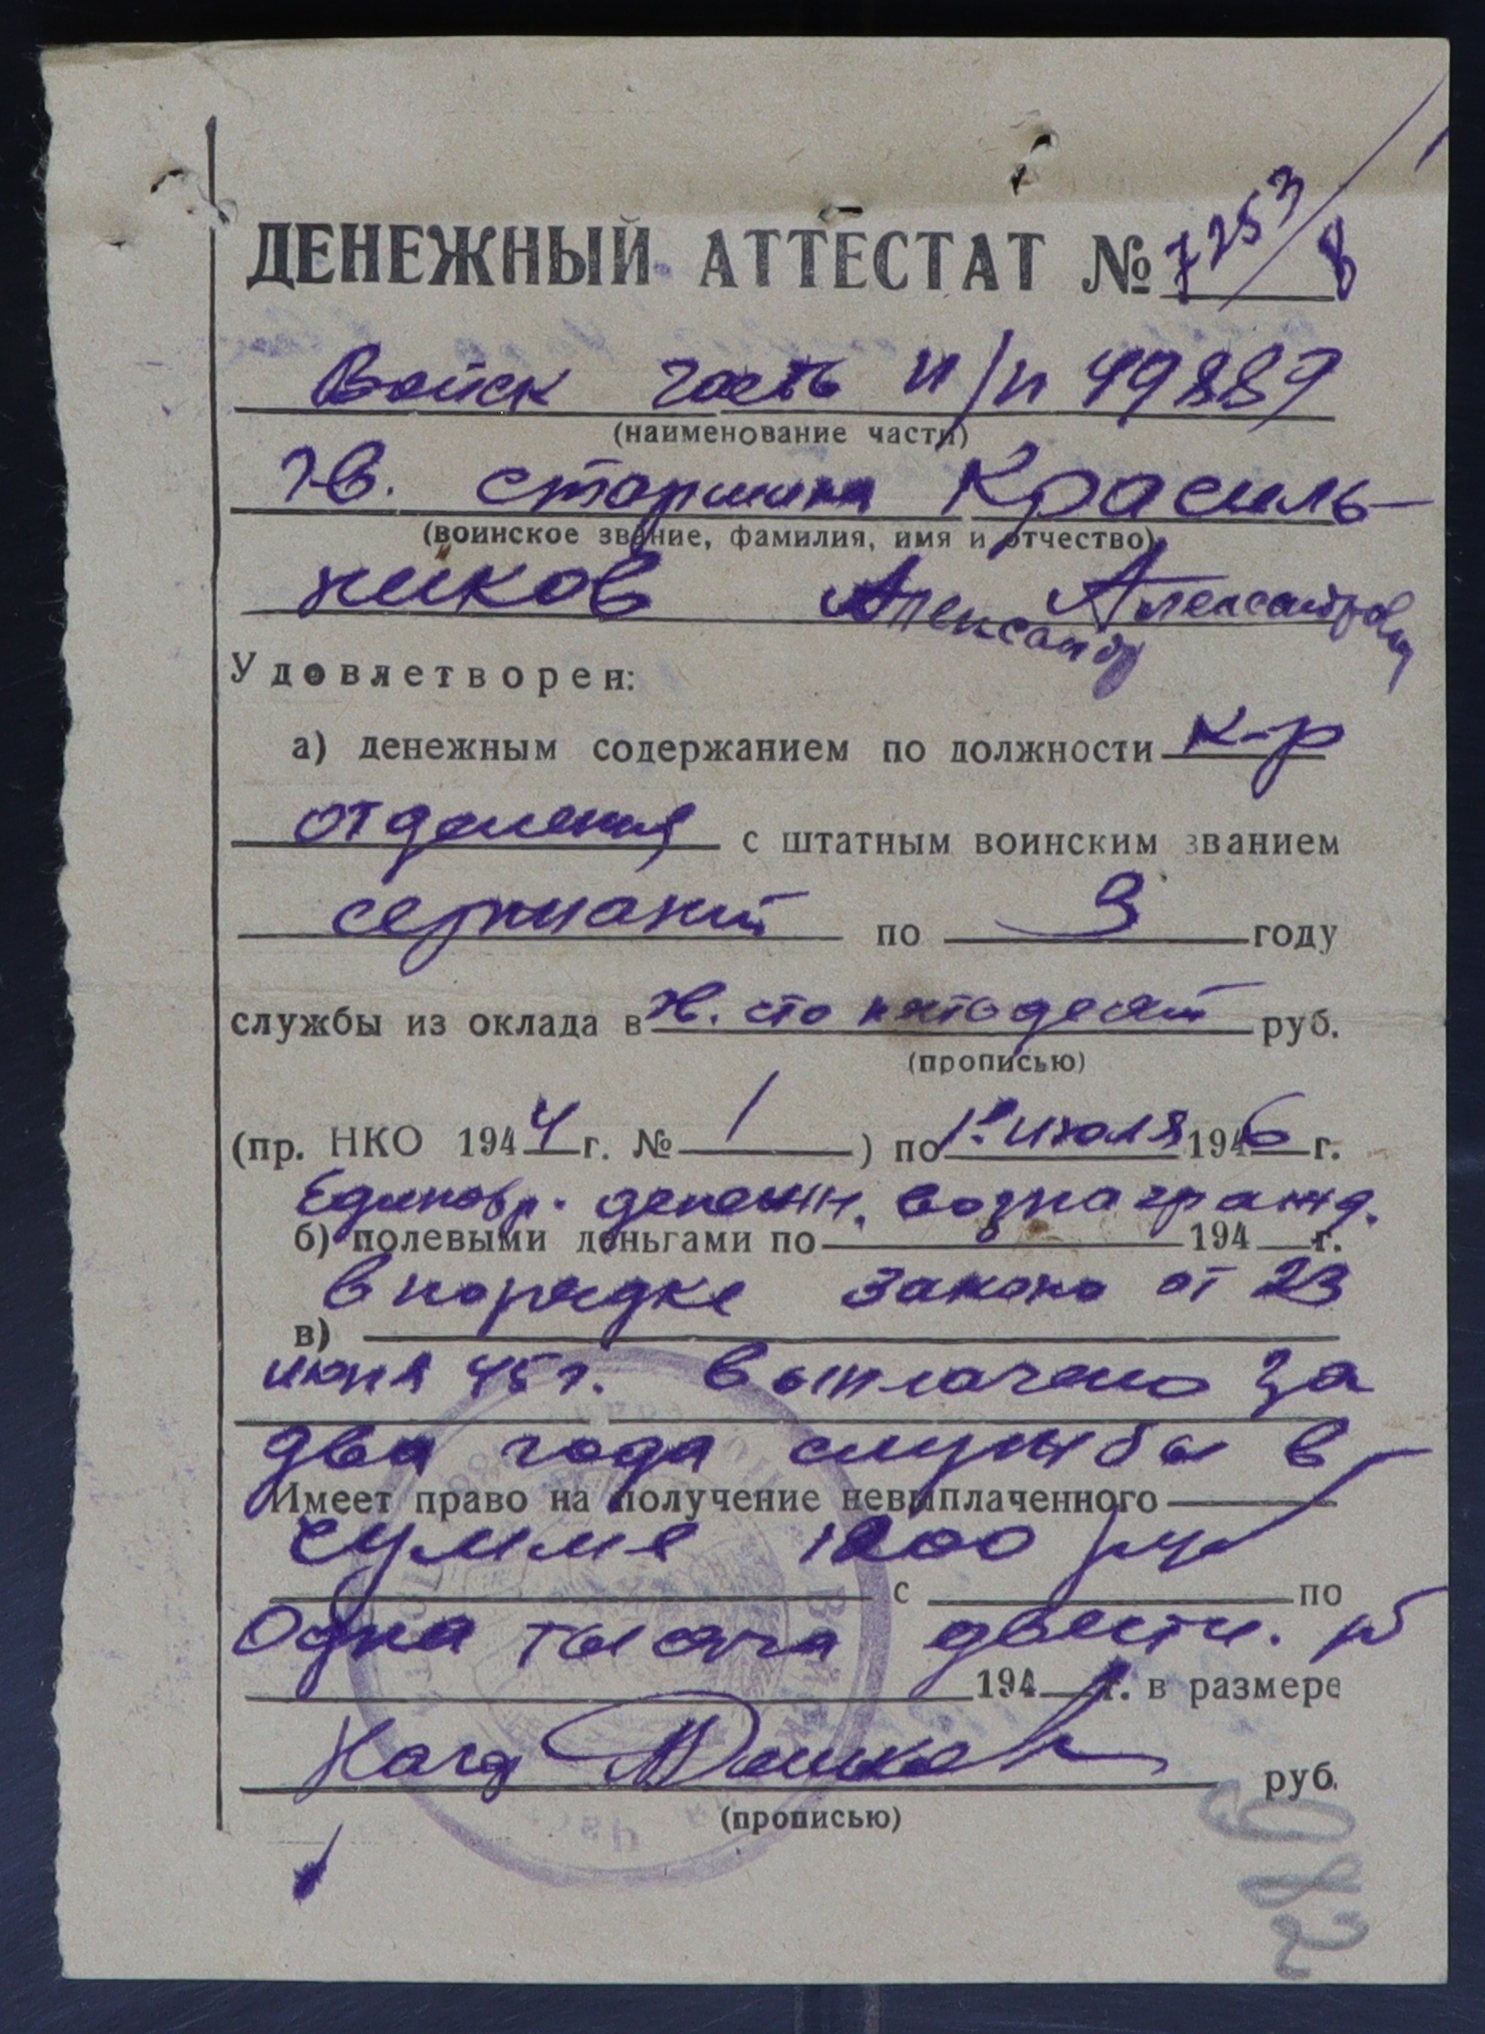 ДЕНЕЖНЫЙ АТТЕСТАТ № 7253/8
Войск часть п/п 49889
(наименование части)
гв. старшина Красиль-
(воинское звание, фамилия, имя и отчество)
ников Александр Александрович
Удовлетворен:
а) денежным содержанием по должности к-р
отделения с штатным воинским званием
сержант по 3 году
службы из оклада в гв. сто пятьдесят руб.
(прописью)
(пр. НКО 1944 г. № 1 ) по 1.е июля 1946 г.
Единовр. денежн. вознагражд.
б) полевыми деньгами по 194 г.
в порядке закона от 23
в)
июня 45 г. выплачено за
два года службы в
Имеет право на получение невыплаченного
сумме 1200 руб
с по
Одна тысяча двести. р
194 г. в размере
Нач
руб.
(прописью)
982